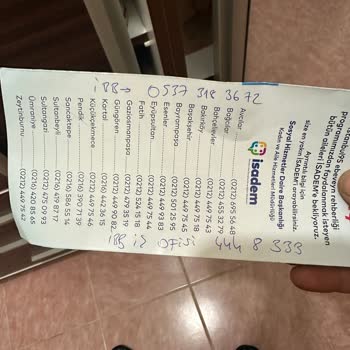 ebeveyn rehberliği
Programımızdan faydalanmak isteyen
bütün aileleri İSADEM'e bekliyoruz.
Ayrıntılı bilgi için
size en yakın İSADEM'i arayabilirsiniz.
Sosyal Hizmetler Daire Başkanlığı
Kadın ve Aile Hizmetleri Müdürlüğü
isadem
Avcılar (0212) 695 56 48
Bağcılar (0212) 455 32 79
Bahçelievler (0212) 449 75 43
Bakırköy (0212) 449 75 18
Başakşehir (0212) 449 75 45
Bayrampaşa (0212) 501 25 95
Esenler (0212) 449 93 83
Eyüpsultan (0212) 449 75 44
Fatih (0212) 524 15 18
Gaziosmanpaşa (0212) 479 35 19
Güngören (0212) 449 90 82
Kartal (0216) 442 36 15
Küçükçekmece (0212) 449 75 46
Pendik (0216) 390 71 39
Sancaktepe (0216) 586 55 14
Sultanbeyli (0216) 429 87 17
Sultangazi (0212) 475 09 93
Ümraniye (0216) 420 85 65
Zeytinburnu (0212) 449 75 42
İBB→ 0537 318 3672
İBB İŞ OFİSİ 444 8 333